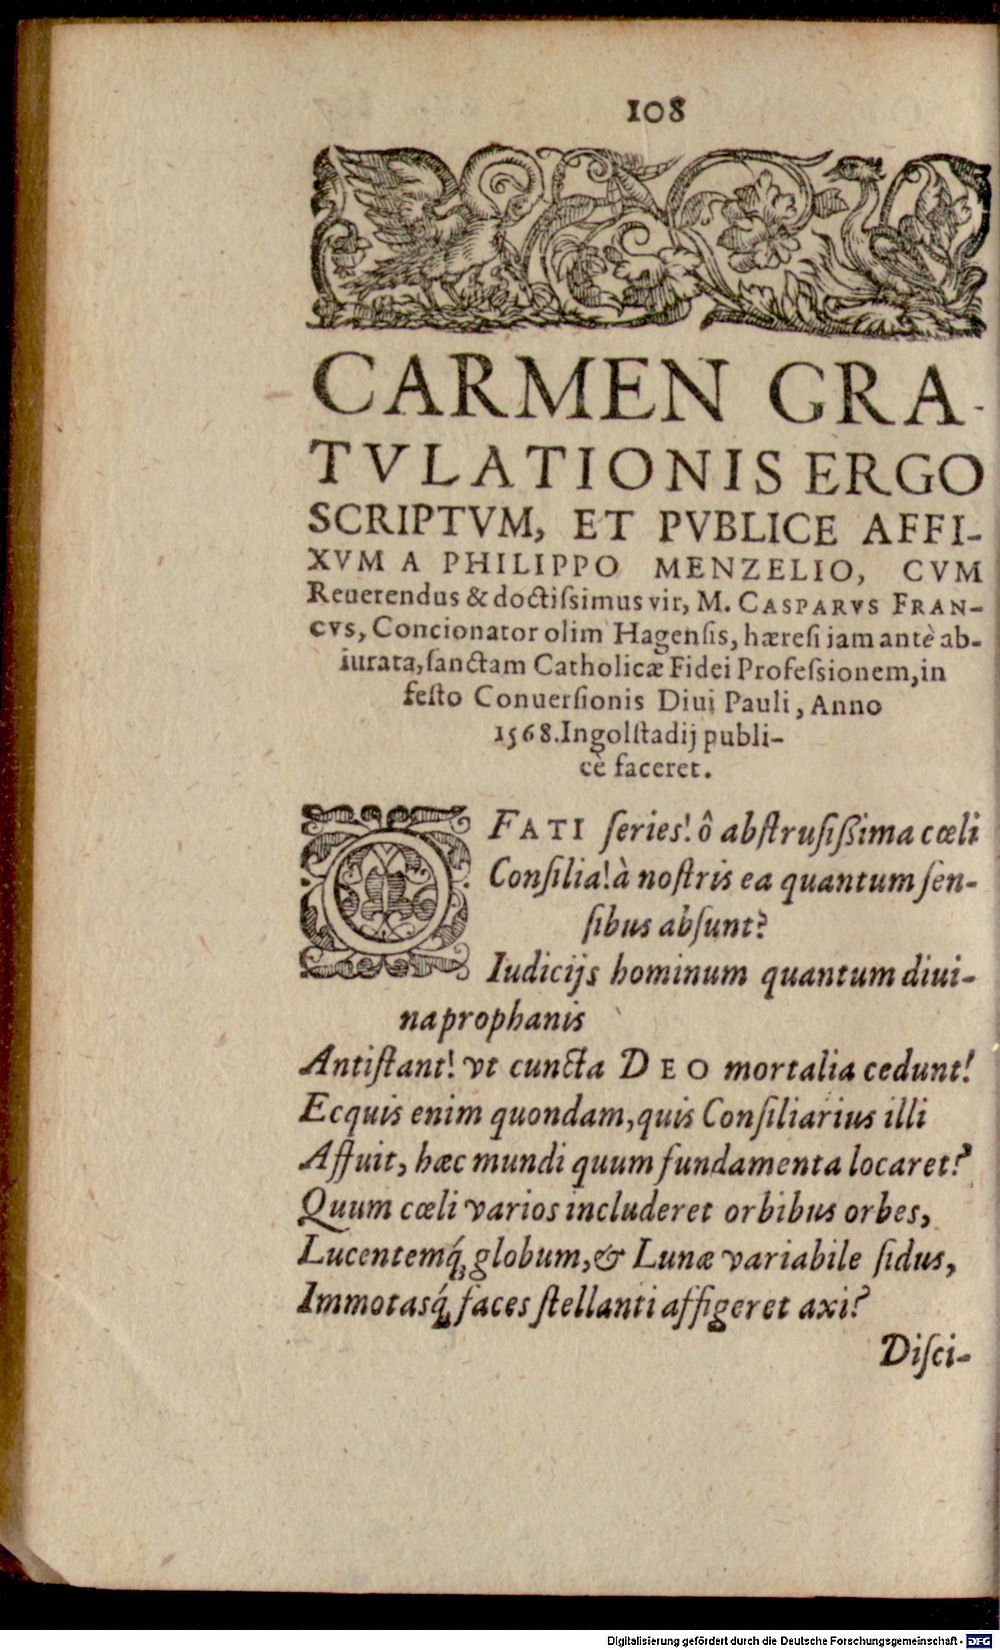 108
CARMEN GRA-
TVLATIONIS ERGO
SCRIPTVM, ET PVBLICE AFFI-
XVM A PHILIPPO MENZELIO, CVM
Reuerendus & doctiſsimus vir, M. CASPARVS FRAN-
CVS, Concionator olim Hagenſis, hæreſi iam antè ab-
iurata, ſanctam Catholicæ Fidei Profeſsionem, in
feſto Conuerſionis Diui Pauli, Anno
1568. Ingolſtadij publi-
cè faceret.
O FATI ſeries! ô abſtruſiſsima cœli
Conſilia! à noſtris ea quantum ſen-
ſibus abſunt?
Iudicijs hominum quantum diui-
na prophanis
Antiſtant! vt cuncta DEO mortalia cedunt!
Ecquis enim quondam, quis Conſiliarius illi
Affuit, hæc mundi quum fundamenta locaret?
Quum cœli varios includeret orbibus orbes,
Lucentemq́; globum, & Lunæ variabile ſidus,
Immotasq́; faces ſtellanti affigeret axi?
Diſci-
Digitalisierung gefördert durch die Deutsche Forschungsgemeinschaft - DFG